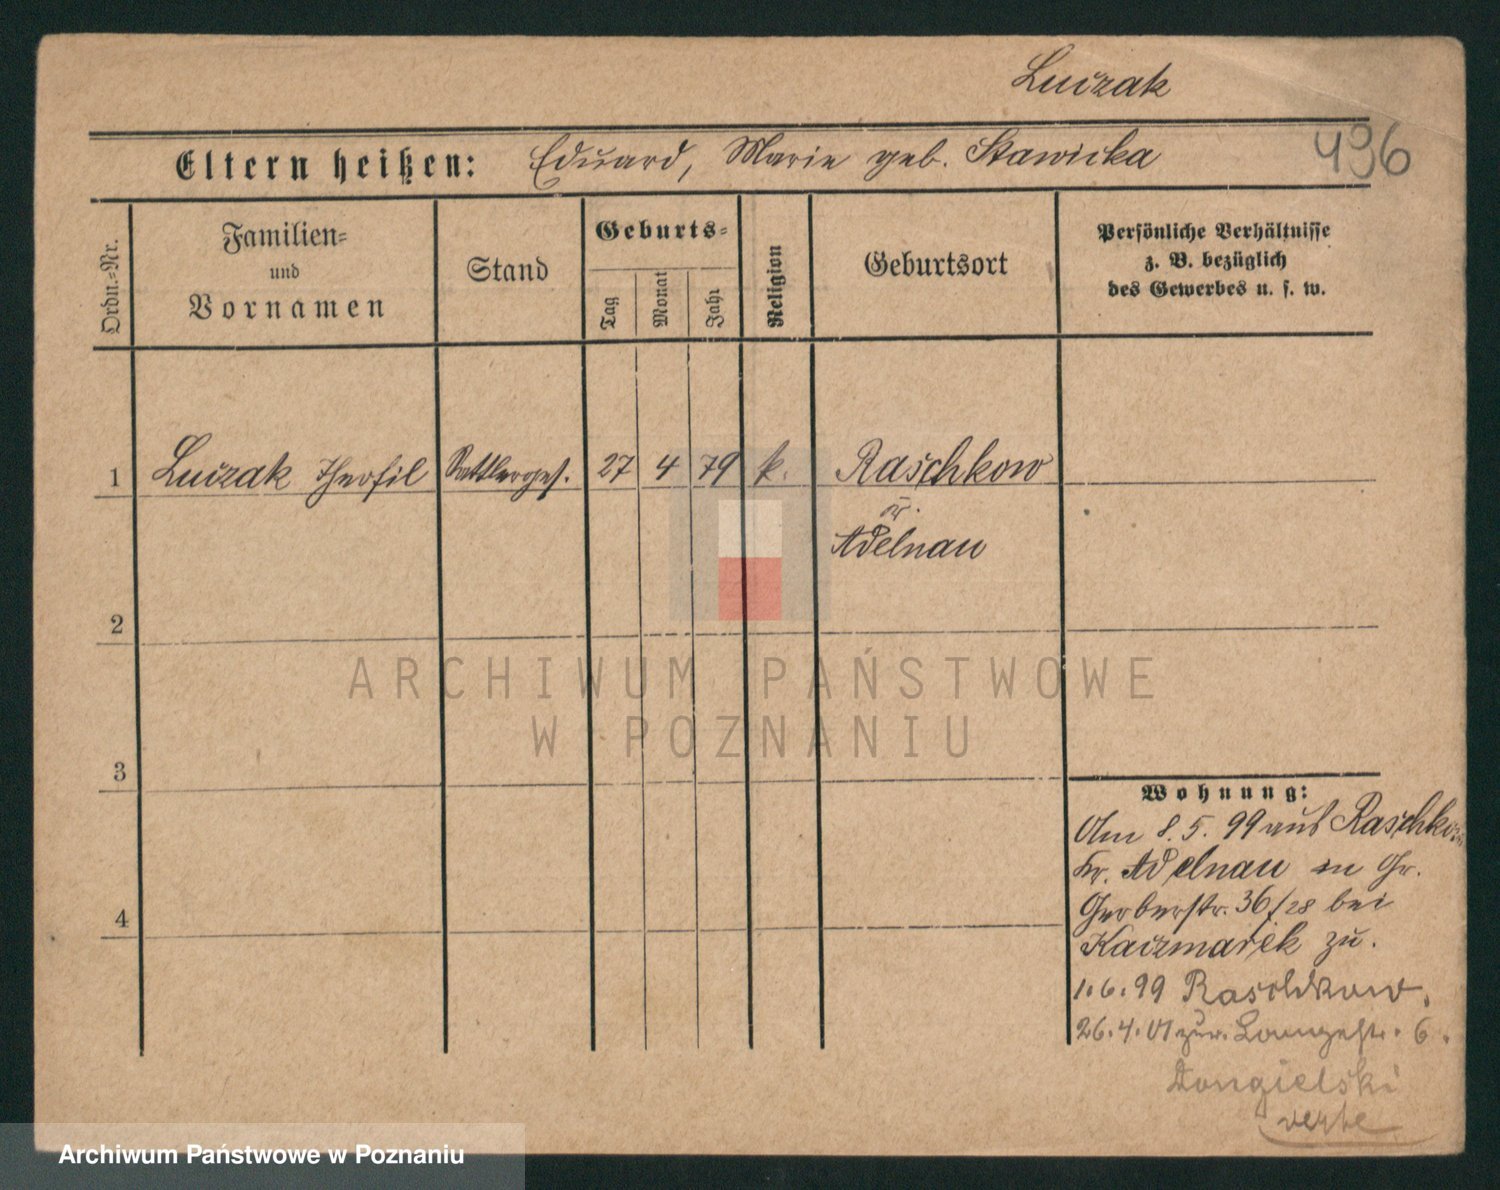 Luczak
496
Eltern heißen: Eduard, Marie geb. Stawicka
Ordn.-Nr.
Familien-
und
Vornamen
Stand
Geburts-
Tag
Monat
Jahr
Religion
Geburtsort
Persönliche Verhältnisse
z. B. bezüglich
des Gewerbes u. s. w.
1 Luczak Theofil Sattlerges. 27 4 79 k. Raschkow
Kr.
Adelnau
2
3
4
ARCHIWUM PAŃSTWOWE
W POZNANIU
Wohnung:
Am 8.5.99 aus Raschkow
Kr. Adelnau in Gr.
Gerberstr. 36/28 bei
Kaczmarek zu.
1.6.99 Raschkow.
26.4.01 zur. Langestr. 6.
Archiwum Państwowe w Poznaniu